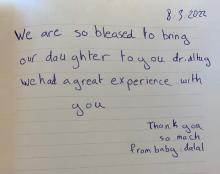 8.3.2022
We are so bleased to bring
our daughter to you dr.altug
we had a great experience with
you
Thank you
so much
from baby.dalal